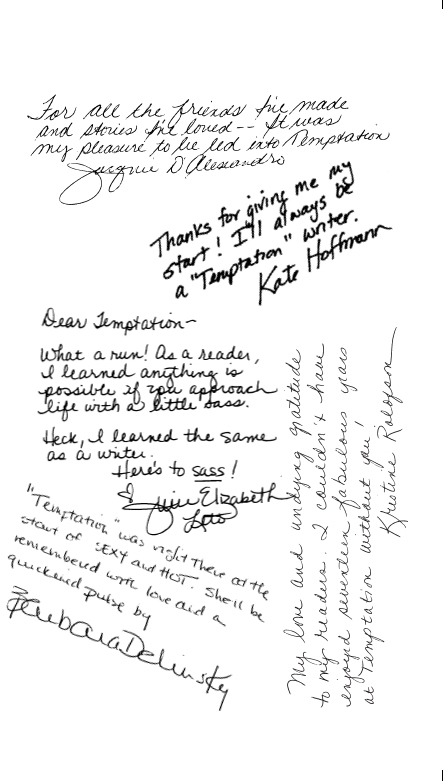 For all the friends I've made
and stories I've loved-- It was
my pleasure to be led into Temptation
Jacquie D'Alessandro
Thanks for giving me my
start! I'll always be
a "Temptation" writer.
Kate Hoffmann
Dear Temptation-
What a run! As a reader,
I learned anything is
possible if you approach
life with a little sass.
Heck, I learned the same
as a writer.
Here's to sass!
Julie Elizabeth
Leto
"Temptation" was right there at the
start of SEXY and HOT. She'll be
remembered with love and a
quickened pulse by
Barbara Delinsky
My love and undying gratitude
to my readers. I couldn't have
enjoyed seventeen fabulous years
at Temptation without you!
Kristine Rolofson